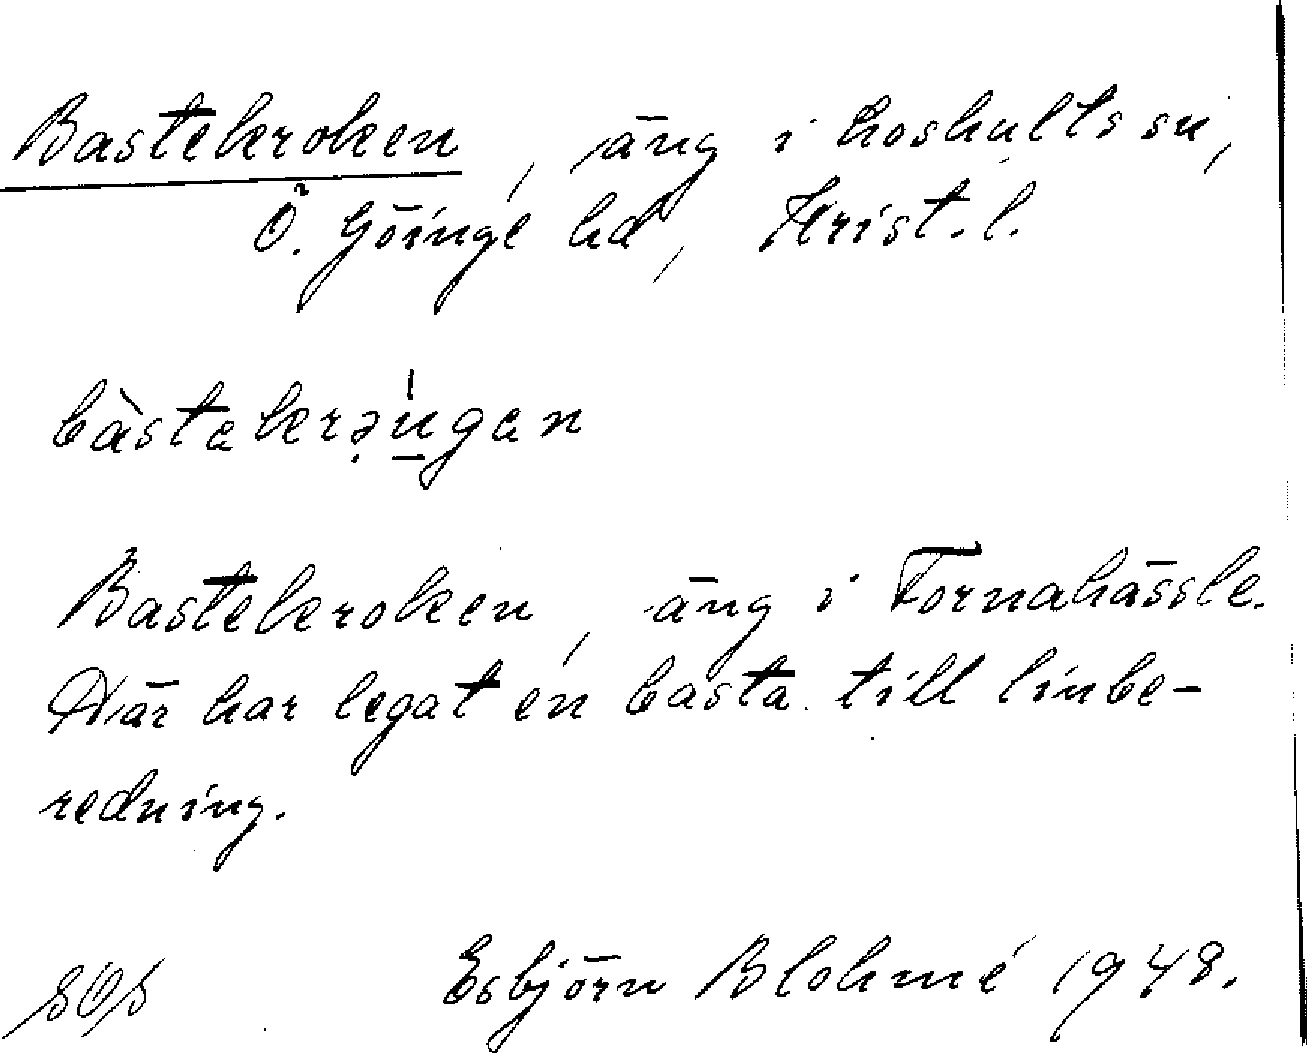 Bastekroken, äng i Loshults sn,
Ö. Göinge hd, Krist. l.
bàstakrəu̱gan
Bastekroken, äng i Fornahässle.
Där har legat en basta till linbe-
redning.
Esbjörn Blohmé 1948.